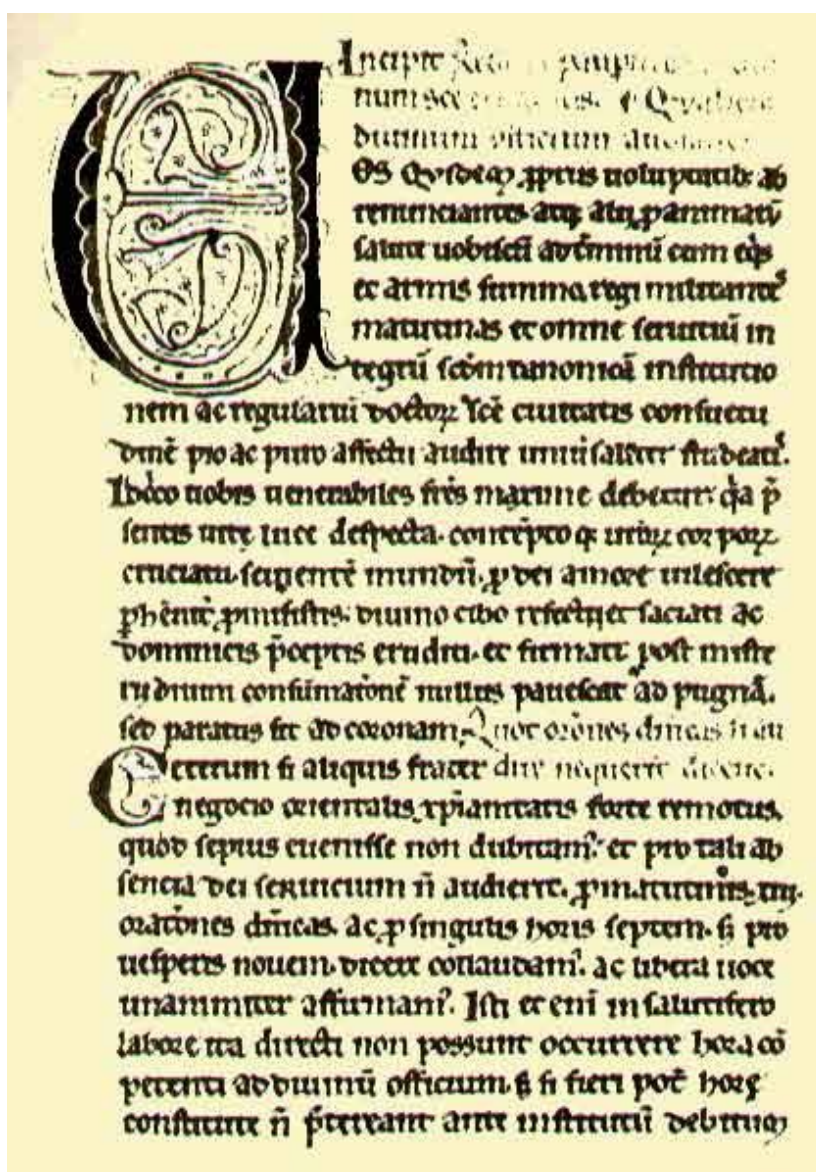 Incipit
divinum officium
OS quidē ꝓpriis uoluptatib; ab
renunciantes atq; alii ꝑ animarū
salute uobiscū ad t̄minū cum eq̄s
et armis summo regi militantes
matutinas et omne seruitiū in
tegrū scd̄m canonicā institutio
nem ac regulariū doctoꝝ sc̄e ciuitatis consuetu
dinē pio ac puro affectu audire uniu̓salit̓ studeatis.
Idc̓co uobis uenerabiles fr̄s maxime debetur. q̓a p̄
sentis uite luce despecta. contēpto q; ur̄oꝝ corpoꝝ
cruciatu. seuientē mundū. ꝓ dei amore uilescere
ꝑhēnit̓ ꝓmisistis. diuino cibo refecti et saciati ac
dominicis p̄ceptis eruditi. et firmati. post miste
rii diuini consūmatōnē nullus pauescat ad pugnā.
sed paratus sit ad coronam. Quot or̄ones dn̄icas si au
Ceterum si aliquis frater dire nequerit
negocio orientalis xp̄ianitatis forte remotus.
quod sepius euenisse non dubitam᾿. et pro tali ab
sencia dei seruicium n̄ audierit. ꝓ matutinis. xiii.
oratōnes dn̄icas. ac ꝓ singulis horis septem. s; pro
uesperis nouem. dicere collaudam᾿. ac libera uoce
unanimiter affirmam᾿. Isti et enī in salutifero
labore ita directi non possunt occurrere hora cō
petenti ad diuinū officium. s; si fieri pot̄ horę
constitute n̄ p̄tereant ante institutū debitum